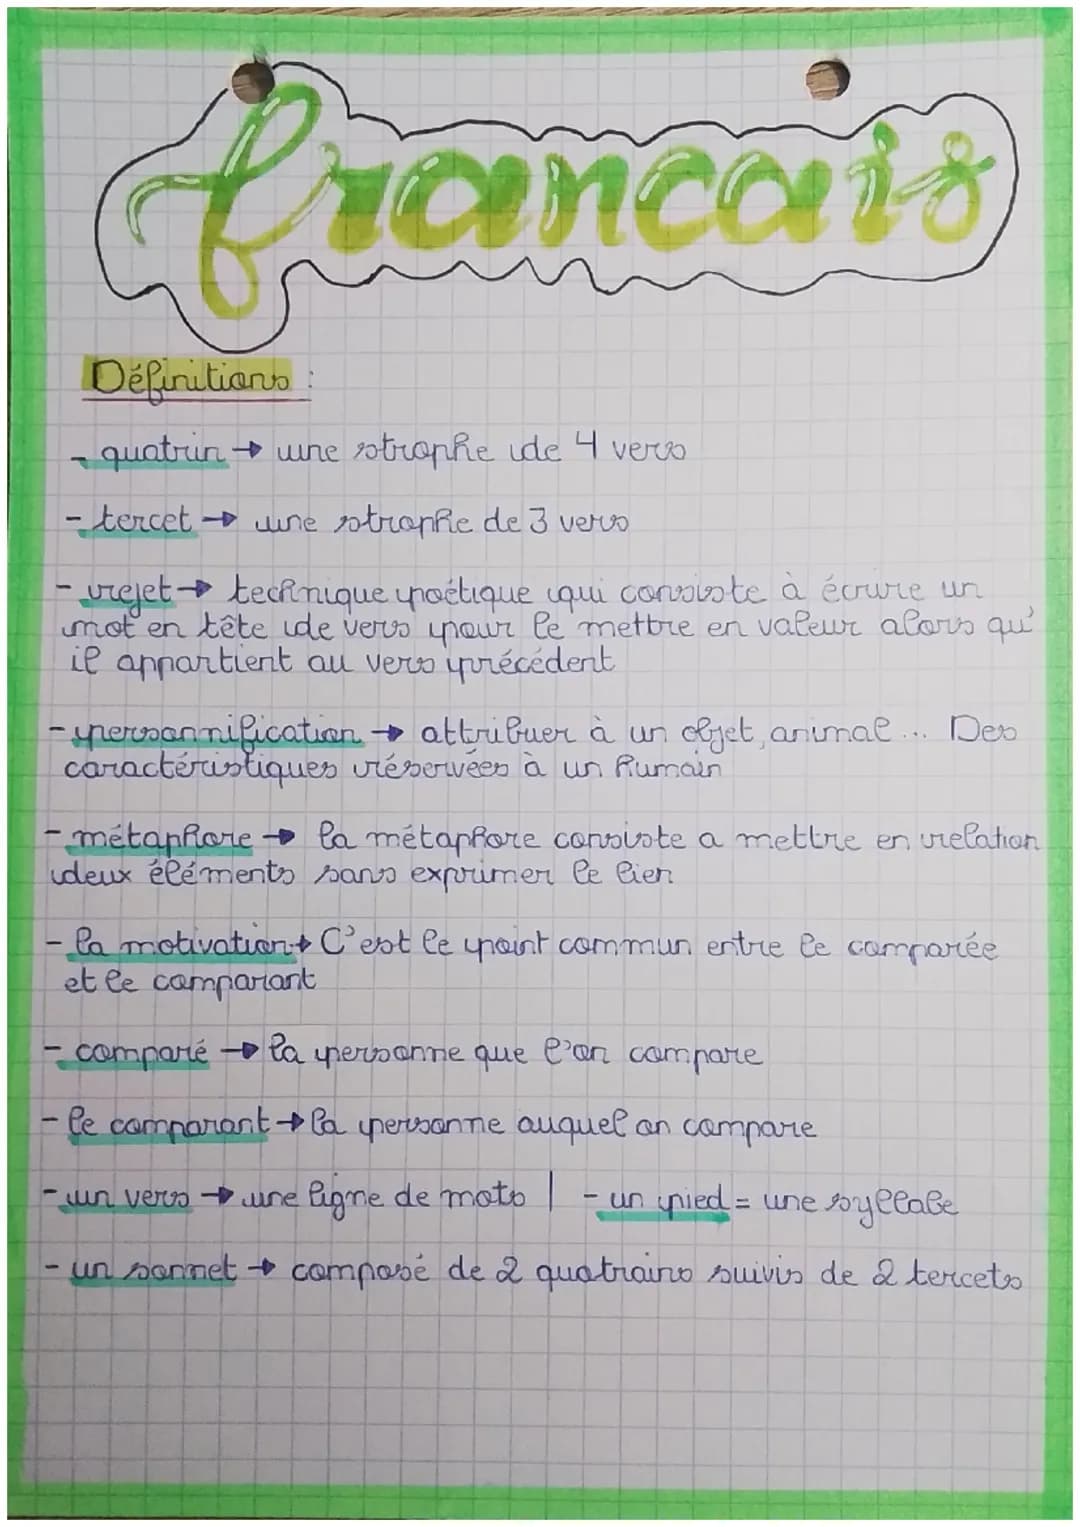 francais
Définitions :
- quatrin → une strophe de 4 vers
- tercet → une strophe de 3 vers
- rejet → technique poétique qui consiste à écrire un
mot en tête de vers pour le mettre en valeur alors qu'
il appartient au vers précédent
- personnification → attribuer à un objet, animal... Des
caractéristiques réservées à un humain
- métaphore → la métaphore consiste a mettre en relation
deux éléments sans exprimer le lien
- la motivation → C'est le point commun entre le comparée
et le comparant
- comparé → la personne que l'on compare
- le comparant → la personne auquel on compare
- un vers → une ligne de mots | - un pied = une syllabe
- un sonnet → composé de 2 quatrains suivis de 2 tercets